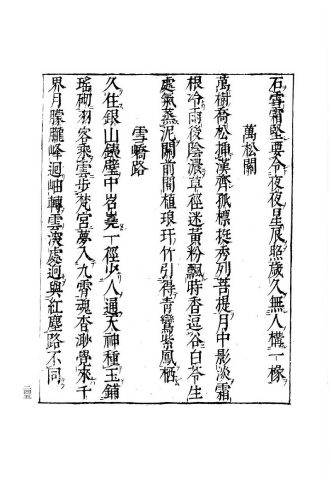 石雪霜堅要令夜夜星辰照歲久無人構一椽
萬松關
萬樹喬松插漢齊孤標挺秀列菩提月中影淡霜
根冷雨後陰濃草徑迷黃粉飄時香逗谷白苓生
處氣蒸泥關前間植琅玕竹引得青鸞紫鳳栖
雪嶠路
久住銀山鐵壁中岧嶤一徑少人通天神種玉鋪
瑤砌羽客乘雲步梵宮夢入九霄魂杳渺覺來千
界月朦朧峰迴岫轉雲深處迥與紅塵路不同
二四五